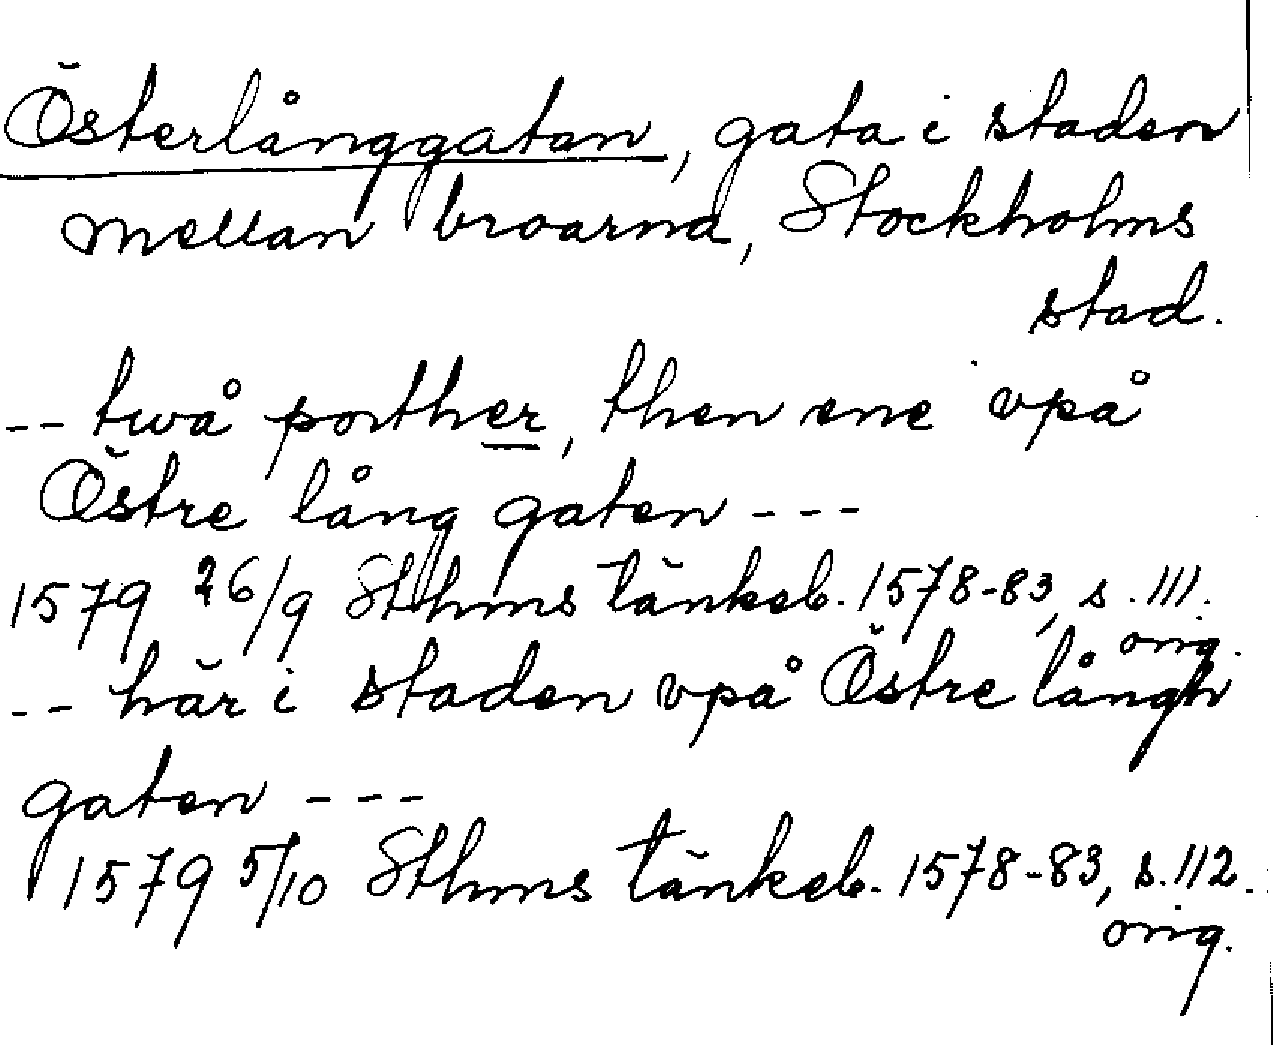 Österlånggatan, gata i staden
mellan broarna, Stockholms
stad.
-- twå porther, then ene vpå
Östre lång gaten ---
1579 26/9 Sthms tänkeb. 1578-83, s. 111.
orig.
-- här i staden vpå Östre långh
gaten ---
1579 5/10 Sthms tänkeb. 1578-83, s. 112.
orig.